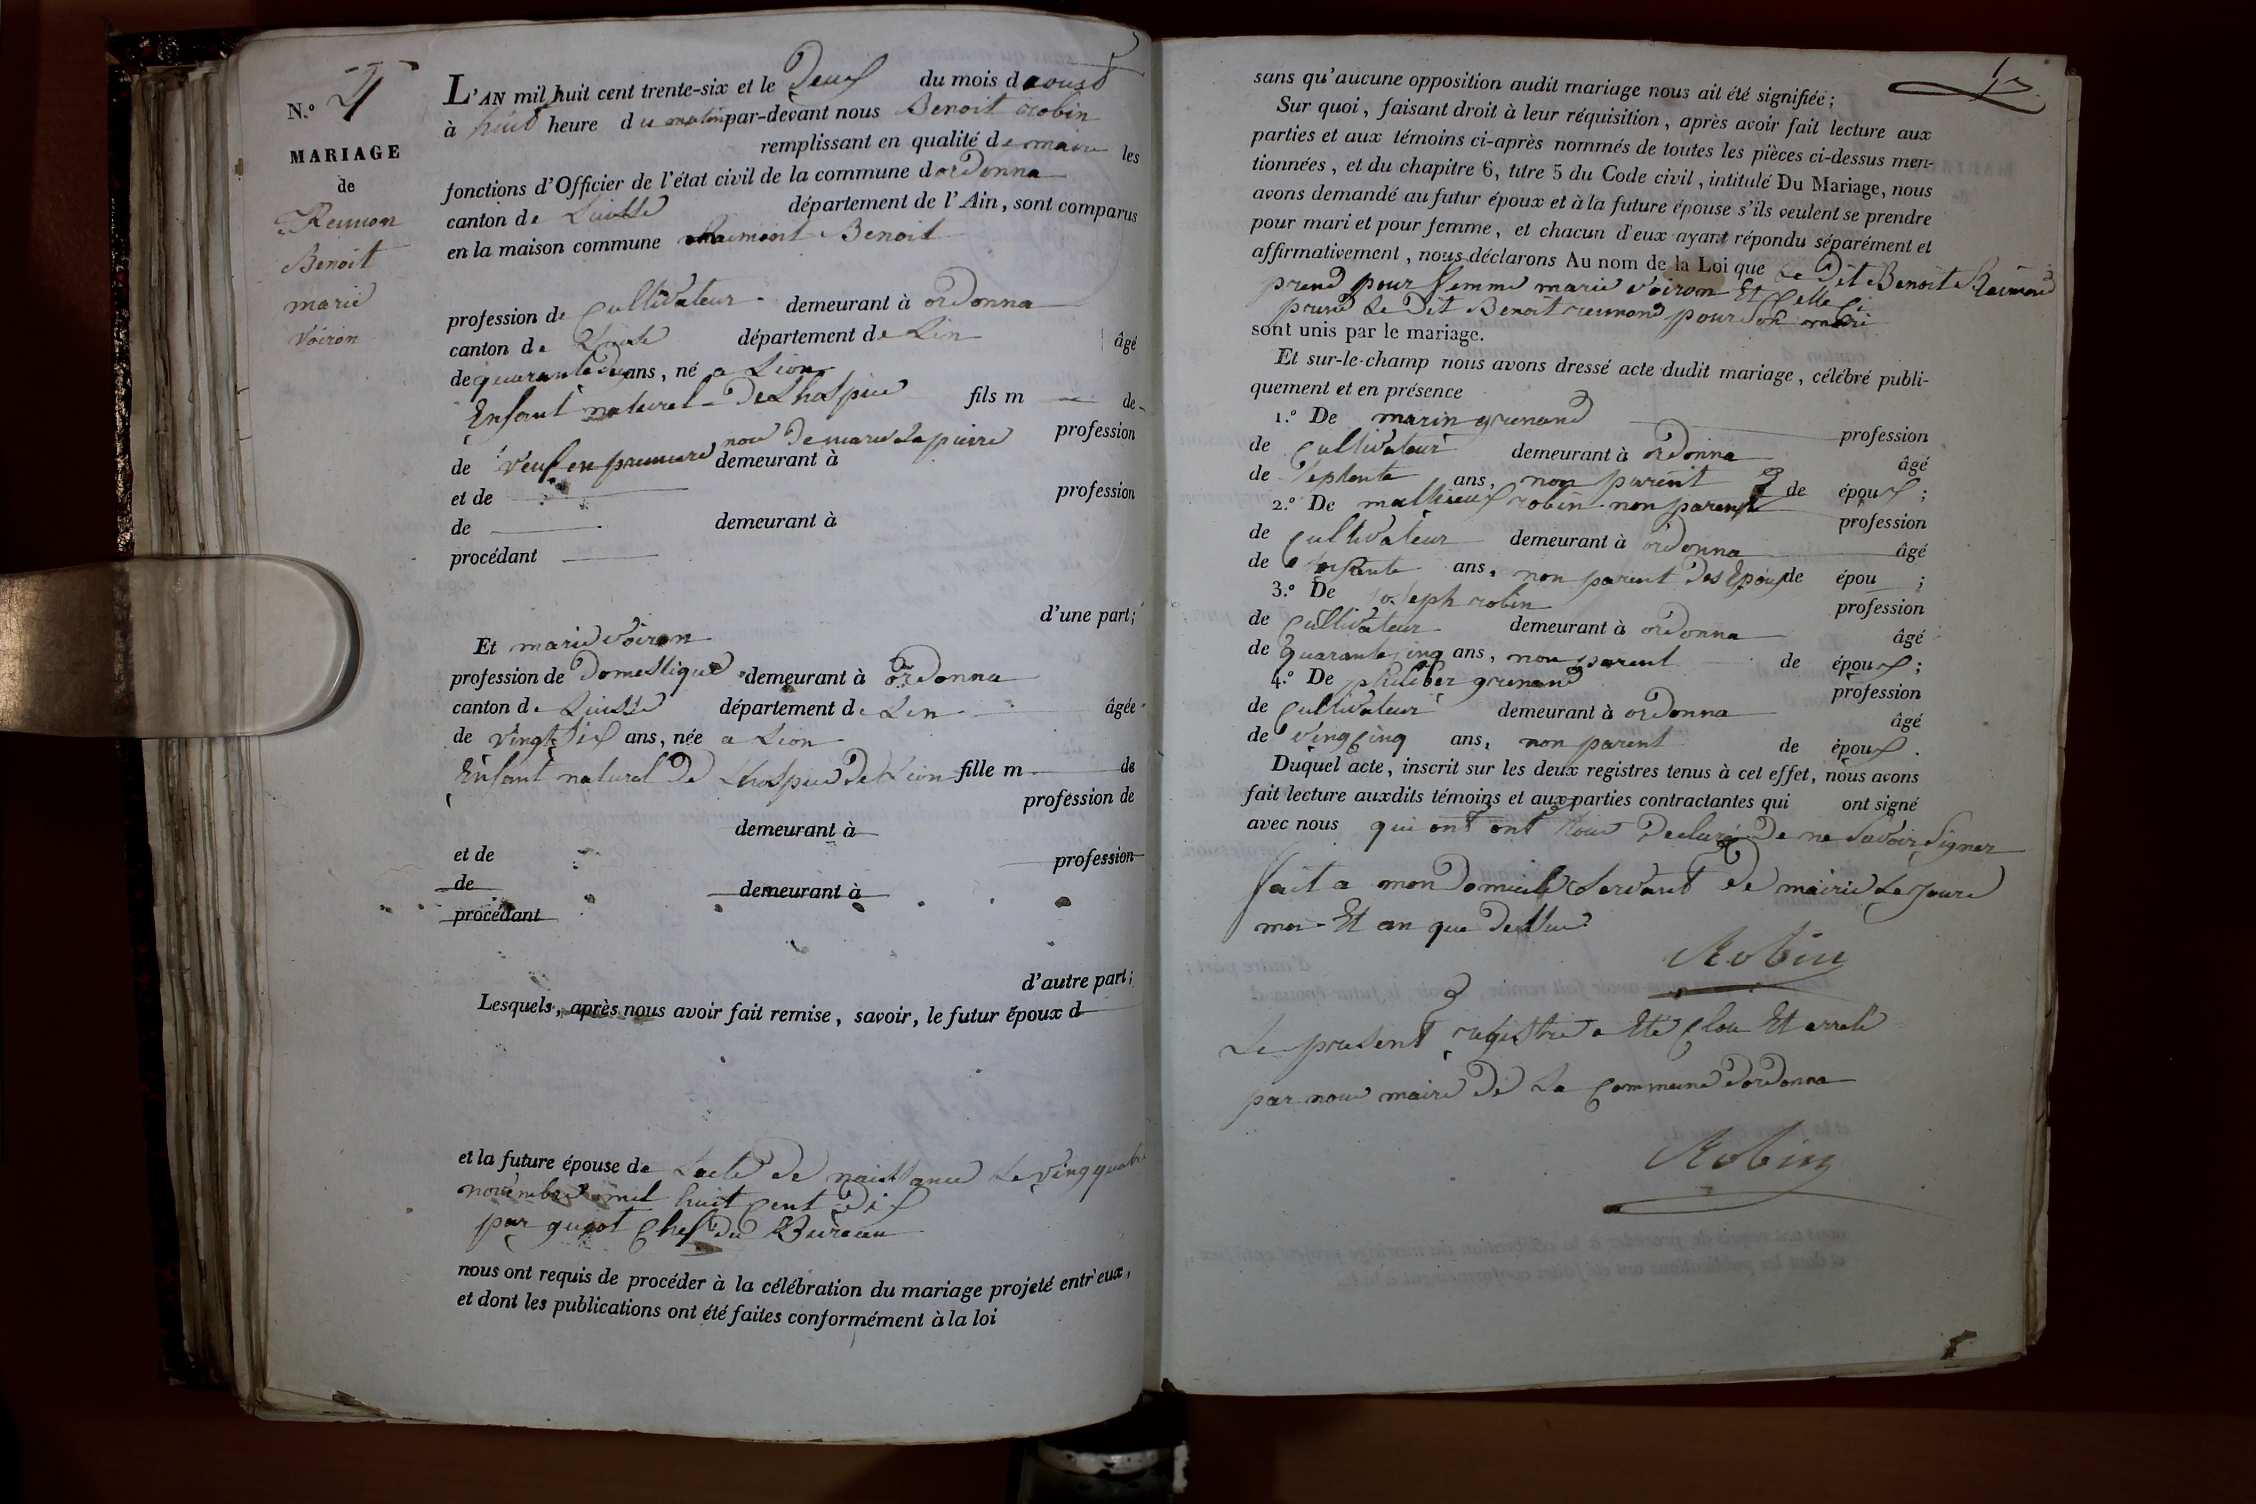 N.º 4
MARIAGE
de
Reimon
Benoit
marie
Voiron
L'AN mil huit cent trente-six et le Deux du mois d aoust
à huit heure du matin par-devant nous Benoit robin
remplissant en qualité de maire les
fonctions d'Officier de l'état civil de la commune dordonna
canton de Luisse département de l'Ain, sont comparus
en la maison commune Raimont Benoit
profession de cultivateur demeurant à ordonna
canton de département de Lin âgé
de quarante ans, né a Lion
Enfant naturel De Lhospice fils m de
de Veuf en premiere noce De marie La pierre profession
demeurant à
et de profession
de demeurant à
procédant
d'une part;
Et marie Voiron
profession de Domestique demeurant à ordonna
canton de Luisse département de Len âgée
de vingt six ans, née a Lion
Enfant naturel De Lhospice De Lion fille m de
profession de
demeurant à
et de profession
de demeurant à
procédant
d'autre part;
Lesquels, après nous avoir fait remise, savoir, le futur époux d
et la future épouse de Lacte de naissance Le Ving quatre
novembre mil huit cent Dix
par guyot chef du Bureau
nous ont requis de procéder à la célébration du mariage projeté entr'eux,
et dont les publications ont été faites conformément à la loi
sans qu'aucune opposition audit mariage nous ait été signifiée;
Sur quoi, faisant droit à leur réquisition, après avoir fait lecture aux
parties et aux témoins ci-après nommés de toutes les pièces ci-dessus men-
tionnées, et du chapitre 6, titre 5 du Code civil, intitulé Du Mariage, nous
avons demandé au futur époux et à la future épouse s'ils veulent se prendre
pour mari et pour femme, et chacun d'eux ayant répondu séparément et
affirmativement, nous déclarons Au nom de la Loi que Le Dit Benoit Reimond
prend pour femme marie Voiron Et celle ci
prend Le Dit Benoit reimond pour son mari
sont unis par le mariage.
Et sur-le-champ nous avons dressé acte dudit mariage, célébré publi-
quement et en présence
1.º De marin grenand profession
de cultivateur demeurant à ordonna âgé
de Septente ans, non parent de époux;
2.º De mathieux robin non parent profession
de cultivateur demeurant à ordonna âgé
de ans, non parent Des Epoux de épou ;
3.º De Joseph robin profession
de cultivateur demeurant à ordonna âgé
de quarante cinq ans, non parent de époux;
4.º De philiber grenand profession
de cultivateur demeurant à ordonna âgé
de Ving cinq ans, non parent de époux.
Duquel acte, inscrit sur les deux registres tenus à cet effet, nous avons
fait lecture auxdits témoins et aux parties contractantes qui ont signé
avec nous qui ont ont tous Declaré De ne Savoir Signer
fait a mon Domicile Servant De mairie Le Jour
moi Et an que Dessus
Robin
Le present registre a Eté clou Et arreté
par nous maire De La Commune dordonna
Robin